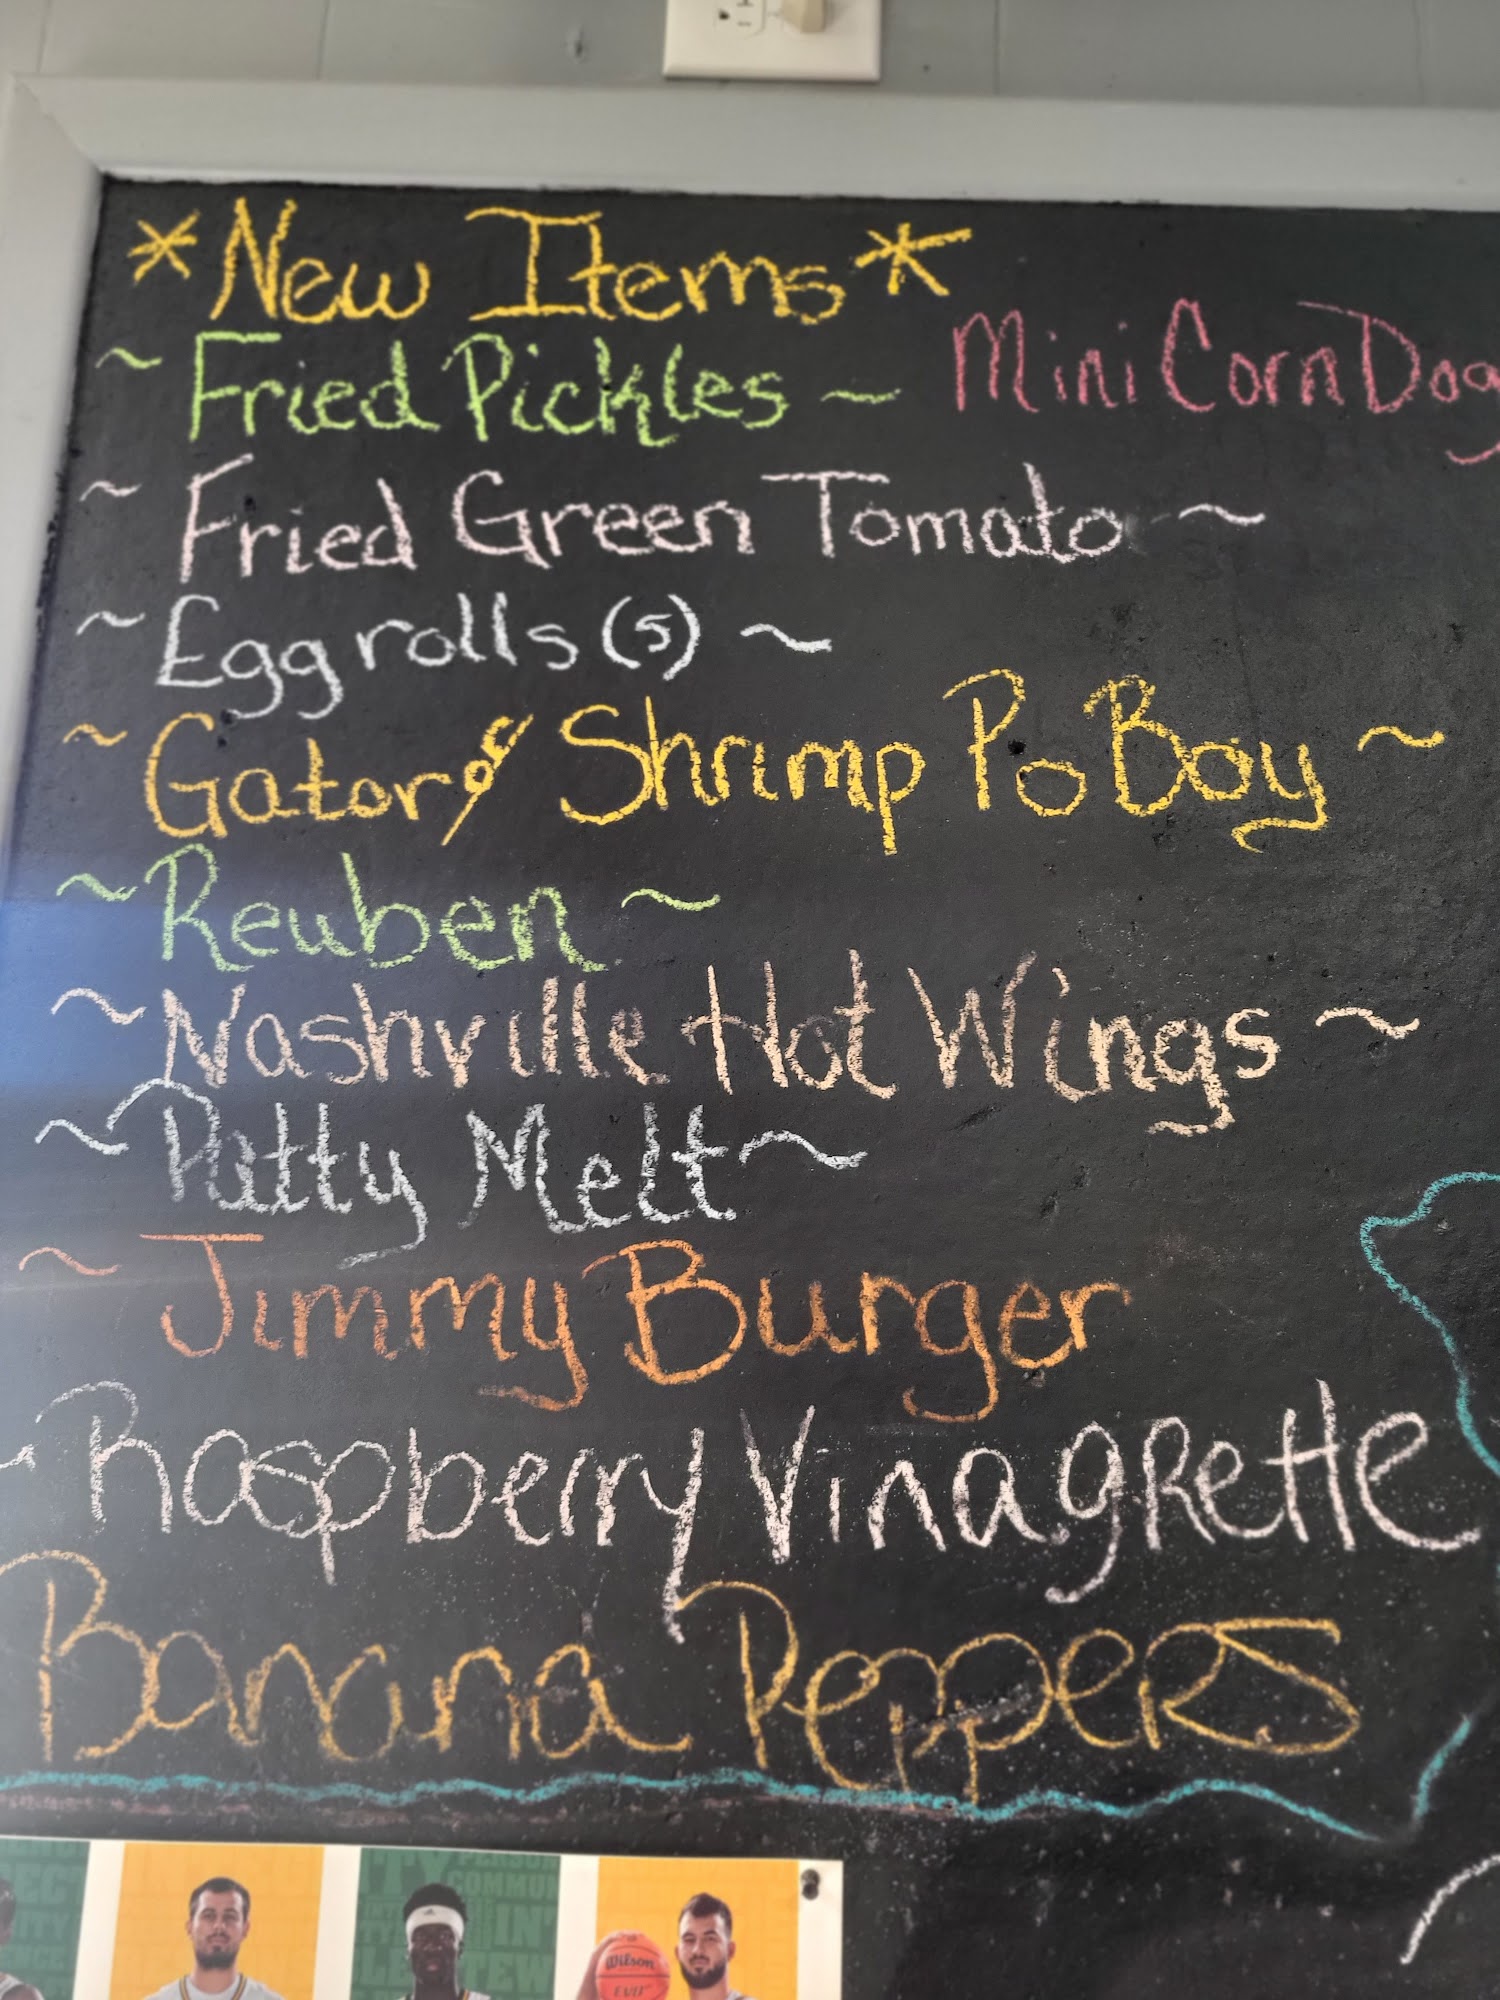 *New Items*
~ Fried Pickles ~ Mini Corn Dog
~ Fried Green Tomato ~
~ Eggrolls (5) ~
~ Gator % Shrimp Po Boy ~
~ Reuben ~
~ Nashville Hot Wings ~
~ Patty Melt ~
~ Jimmy Burger
~ Raspberry VinagRette
Banana PeppeRs
Wilson
EVO